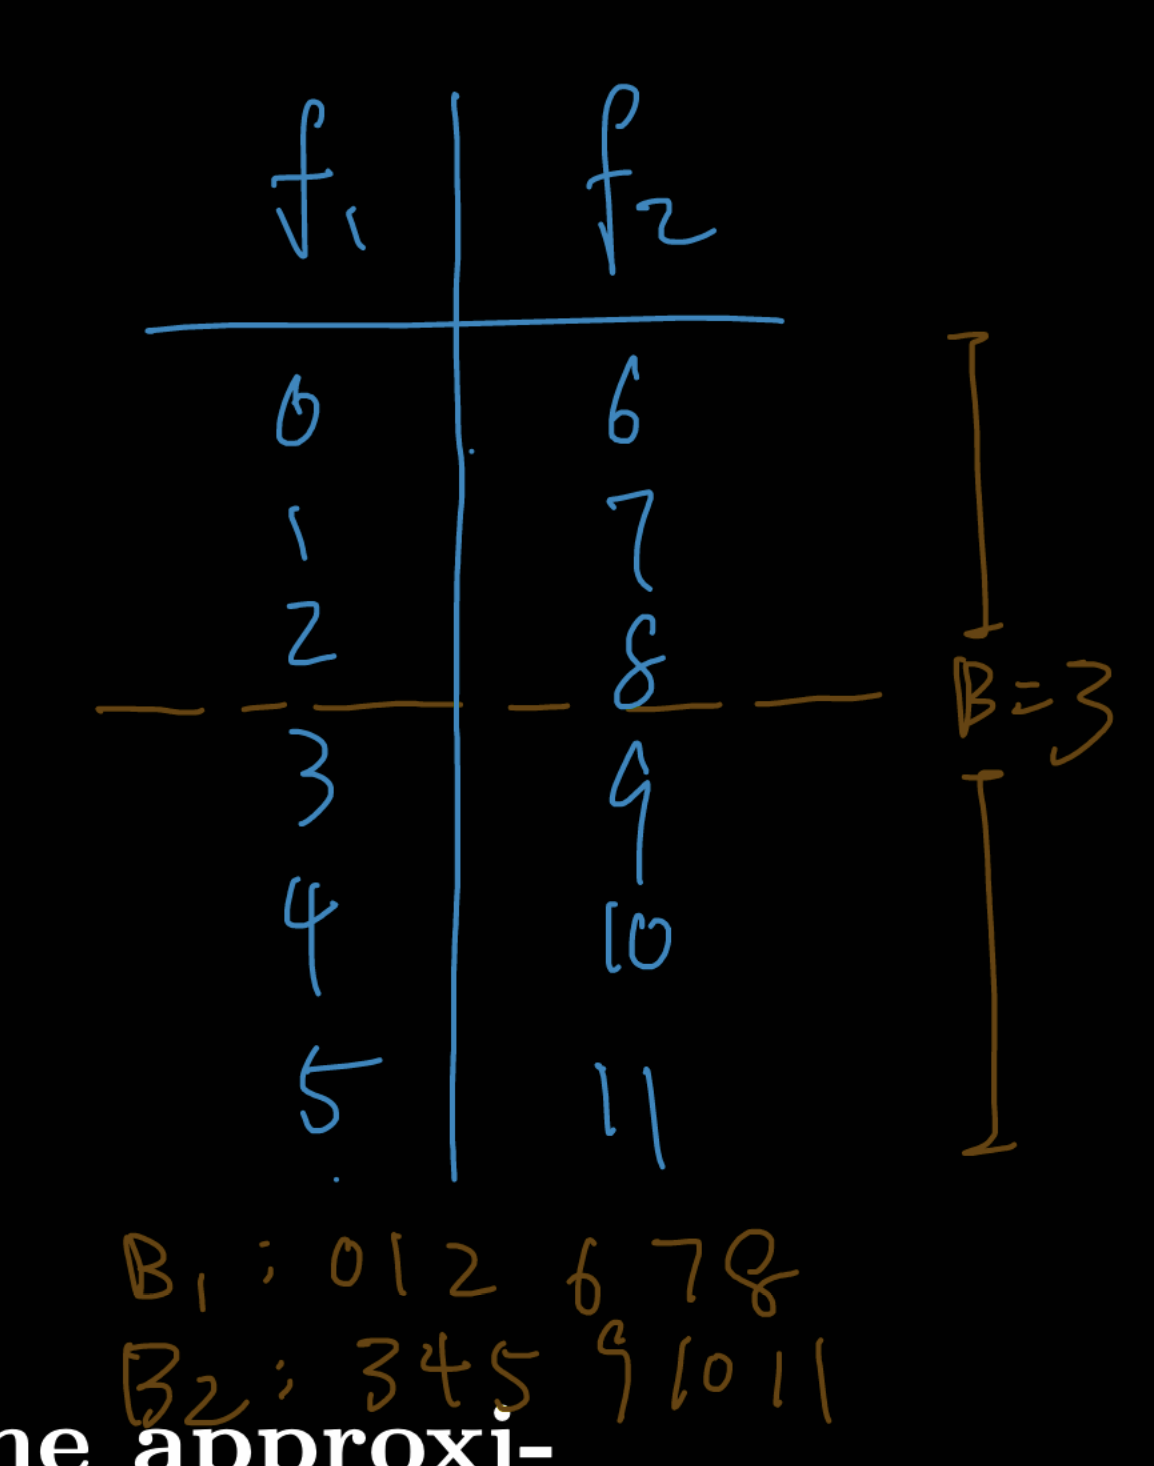 f1 f2
0 6
1 7
2 8
B=3
3 9
4 10
5 11
B1: 012 678
B2: 345 91011
ne approxi-